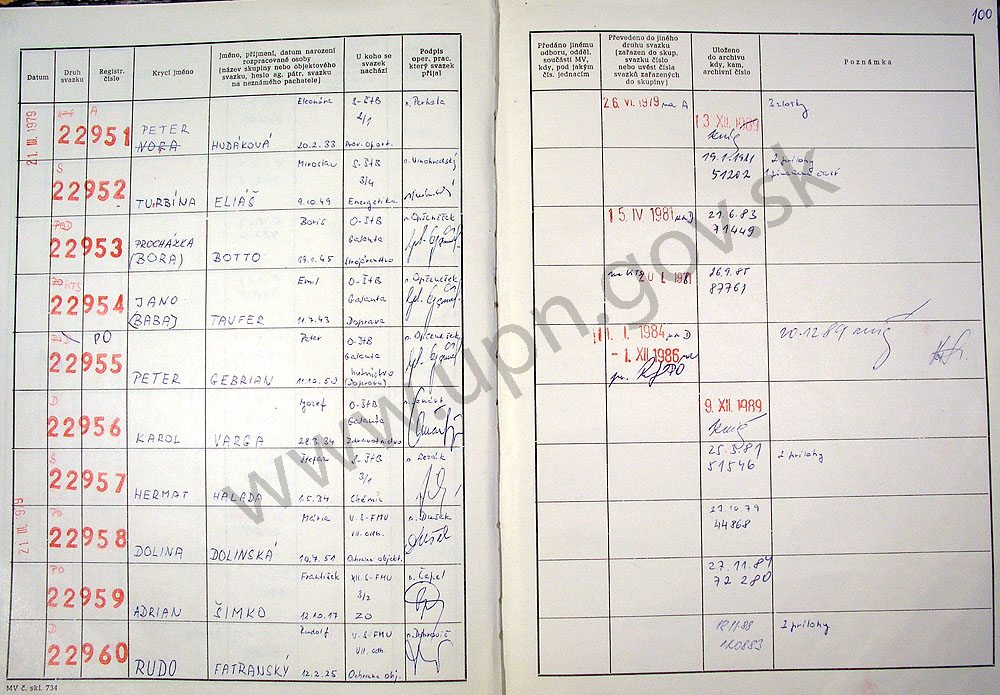 100
Datum
Druh
svazku
Registr.
číslo
Krycí jméno
Jméno, příjmení, datum narození
rozpracované osoby
(název skupiny nebo objektového
svazku, heslo ag. pátr. svazku
na neznámého pachatele)
U koho se
svazek
nachází
Podpis
oper. prac.
který svazek
přijal
Předáno jinému
odboru, odděl.
součásti MV,
kdy, pod jakým
čís. jednacím
Převedeno do jiného
druhu svazku
(zařazen do skup.
svazku číslo
nebo uvést čísla
svazků zařazených
do skupiny)
Uloženo
do archivu
kdy, kam,
archivní číslo
Poznámka
21. III. 1979
A
22951
PETER
NORA
Eleonóra
HUDÁKOVÁ
20.2.33
S-ŠtB
2/1
p. Perhala
26. VI. 1979 na A
13 XII. 1989
3 zložky
Š
22952
TURBÍNA
Miroslav
ELIÁŠ
9.10.49
S-ŠtB
3/4
Energetika
p. Vinohradský
19.1.1981
51202
2 prílohy
22953
PROCHÁZKA
(BORA)
Boris
BOTTO
19.1.45
O-ŠtB
Galanta
Strojárenstvo
15. IV 1981 na D
21.6.83
71449
22954
JANO
(BABA)
Emil
TAUFER
11.7.43
O-ŠtB
Galanta
Doprava
na KTS 20 I. 1981
26.9.85
87761
PO
22955
PETER
Peter
GEBRIAN
11.10.50
O-ŠtB
Galanta
(Doprava)
11. I. 1984 na D
- 1. XII 1986 na
PO
20.12.89
D
22956
KAROL
Jozef
VARGA
28.7.34
O-ŠtB
Galanta
Zdravotníctvo
9. XII. 1989
Š
22957
HERMAT
Štefan
HALADA
2.5.34
S-ŠtB
3/1
Chémia
p. Rezák
25.3.81
51546
2 prílohy
21 III. 1979
PO
22958
DOLINA
Mária
DOLINSKÁ
10.7.51
V. S-FMV
VII. odb.
Ochrana objekt.
p. Dušek
44868
PO
22959
ADRIAN
František
ŠIMKO
12.10.17
XII. S-FMV
3/2
ZO
p. Čepel
27.11.84
72 280
D
22960
RUDO
Rudolf
FATRANSKÝ
12.2.25
V. S-FMV
VII. odb
Ochrana obj.
120883
2 prílohy
MV č. skl. 734
www.upn.gov.sk